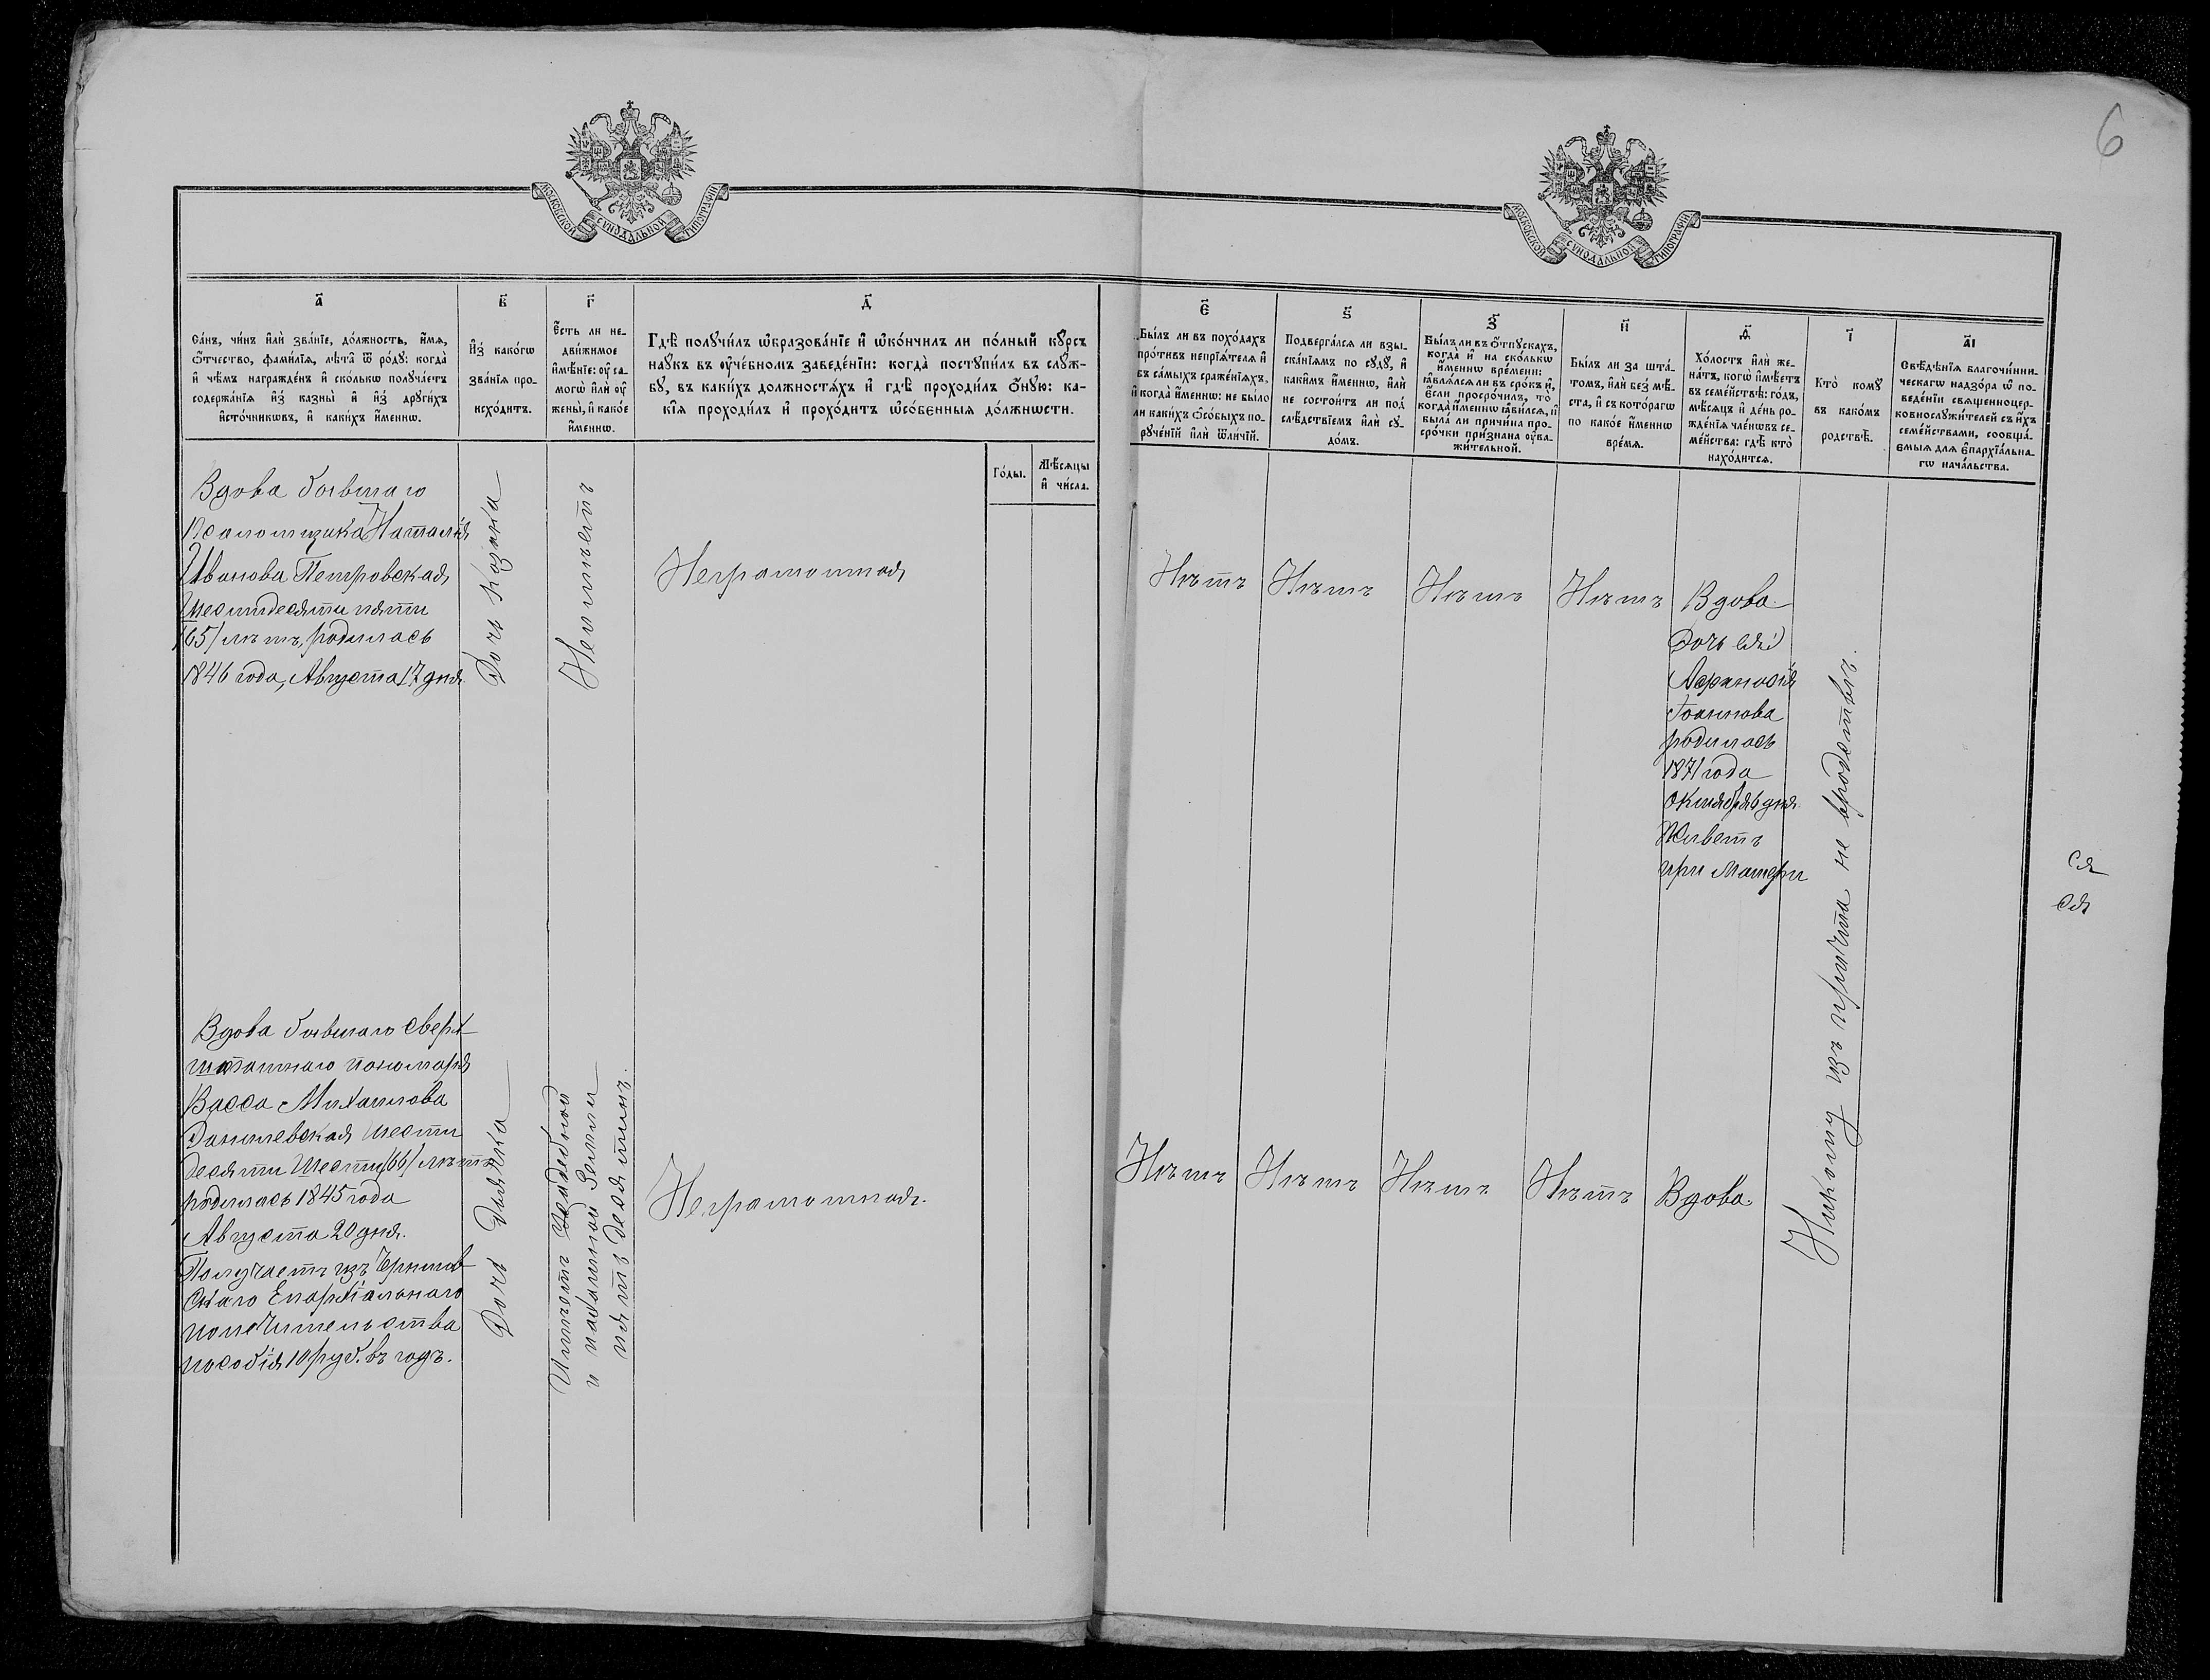 6
МОСКОВСКОЙ СѴНОДАЛЬНОЙ ТИПОГРАФІИ
МОСКОВСКОЙ СѴНОДАЛЬНОЙ ТИПОГРАФІИ
а҃
Са́нъ, чи́нъ и҆лѝ зва́нїе, до́лжность, и҆́мѧ,
ѻ҆́тчество, фами́лїѧ, лѣ̑та ѿ ро́дꙋ: когда̀
и҆ чѣ́мъ награжде́нъ и҆ ско́лькѡ полꙋча́етъ
содержа́нїѧ и҆з̾ казны̀ и҆ и҆з̾ дрꙋги́хъ
и҆сто́чникѡвъ, и҆ каки́хъ и҆́меннѡ.
в҃
И҆з̾ како́гѡ
зва́нїѧ про-
исхо́дитъ.
г҃
Є҆́сть ли не-
дви́жимое
и҆мѣ́нїе: ᲂу҆ са-
могѡ̀ и҆лѝ ᲂу҆
жены̀, и҆ како́е
и҆́меннѡ.
д҃
Гдѣ̀ полꙋчи́лъ ѡ҆бразова́нїе и҆ ѡ҆ко́нчилъ ли по́лный кꙋ́рсъ
наꙋ́къ въ ᲂу҆че́бномъ заведе́нїи: когда̀ постꙋпи́лъ въ слꙋ́ж-
бꙋ, въ каки́хъ должностѧ́хъ и҆ гдѣ̀ проходи́лъ ѻ҆́нꙋю: ка-
кі́ѧ проходи́лъ и҆ прохо́дитъ ѡ҆со́бенныѧ до́лжнѡсти.
Го́ды.
Мѣ́сѧцы
и҆ чи́сла.
є҃
Бы́лъ ли въ похо́дахъ
про́тивъ непрїѧ́телѧ и҆
въ са́мыхъ сраже́нїѧхъ,
и҆ когда̀ и҆́меннѡ: не бы́ло
ли каки́хъ ѻ҆со́быхъ по-
рꙋче́нїй и҆лѝ ѿли́чїй.
ѕ҃
Подверга́лсѧ ли взы-
ска́нїѧмъ по сꙋдꙋ̀, и҆
каки̑мъ и҆́меннѡ, и҆лѝ
не состои́тъ ли под̾
слѣ́дствїемъ и҆лѝ сꙋ-
до́мъ.
з҃
Бы́лъ ли въ ѻ҆́тпꙋскахъ,
когда̀ и҆ на ско́лькѡ
и҆́меннѡ вре́мени:
ꙗ҆влѧ́лсѧ ли въ сро́къ и҆,
є҆́сли просро́чилъ, то̀
когда̀ и҆́меннѡ ꙗ҆ви́лсѧ, и҆
была̀ ли причи́на про-
сро́чки при́знана ᲂу҆ва-
жи́тельной.
и҃
Бы́лъ ли за шта́-
томъ, и҆лѝ без̾ мѣ́-
ста, и҆ съ кото́рагѡ
по како́е и҆́меннѡ
вре́мѧ.
ѳ҃
Хо́лостъ и҆лѝ же-
на́тъ, когѡ̀ и҆мѣ́етъ
въ семе́йствѣ: го́дъ,
мѣ́сѧцъ и҆ де́нь ро-
жде́нїѧ чле́нѡвъ се-
ме́йства: гдѣ̀ кто̀
нахо́дитсѧ.
і҃
Кто̀ комꙋ̀
въ како́мъ
родствѣ̀.
а҃і
Свѣ́дѣнїѧ благочи́нни-
ческагѡ надзо́ра ѡ҆ по-
веде́нїи свѧщенноцер-
ковнослꙋжи́телей съ и҆́хъ
семе́йствами, сообща́-
ємыѧ для є҆парха́льна-
гѡ нача́льства.
Вдова бывшаго
псаломщика Наталія
Иванова Петровская,
шестидесяти пяти
/65/ лѣтъ, родилась
1846 года, Августа 17 дня.
Дочь Казака
Не имѣетъ
Неграмотная
Нѣтъ
Нѣтъ
Нѣтъ
Нѣтъ
Вдова.
Дочь ея:
Іоаннова
родилась
1871 года
Октября 6 дня.
Живетъ
при матери
Никому изъ причта не вродствѣ.
ся
ся
Вдова бывшаго сверх-
штатнаго пономаря
Васса Михаилова
Данилевская шести
десяти шести /66/ лѣтъ
родилась 1845 года
Августа 20 дня.
Получаетъ изъ Чернигов-
скаго Епархіальнаго
попечительства
пособія 10 руб. въ годъ.
Дочь Дьячка
Имѣетъ усадебной
и пахатной земли
пять десятинъ.
Неграмотная.
Нѣтъ
Нѣтъ
Нѣтъ
Нѣтъ
Вдова.